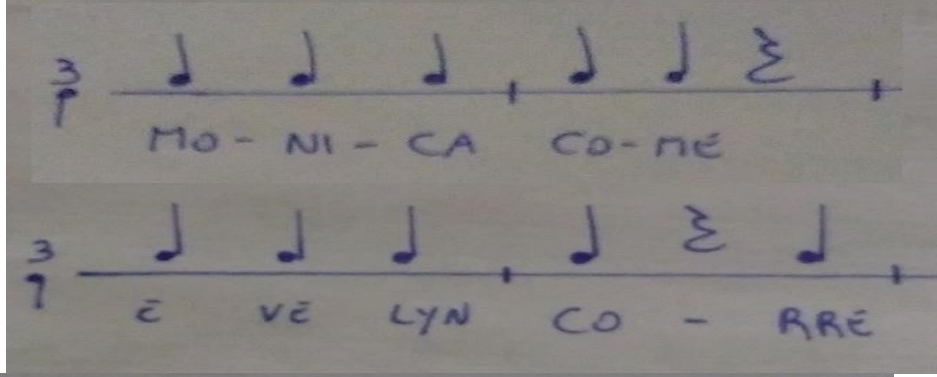 3
MO - NI - CA CO - ME
3
E VE LYN CO - RRE